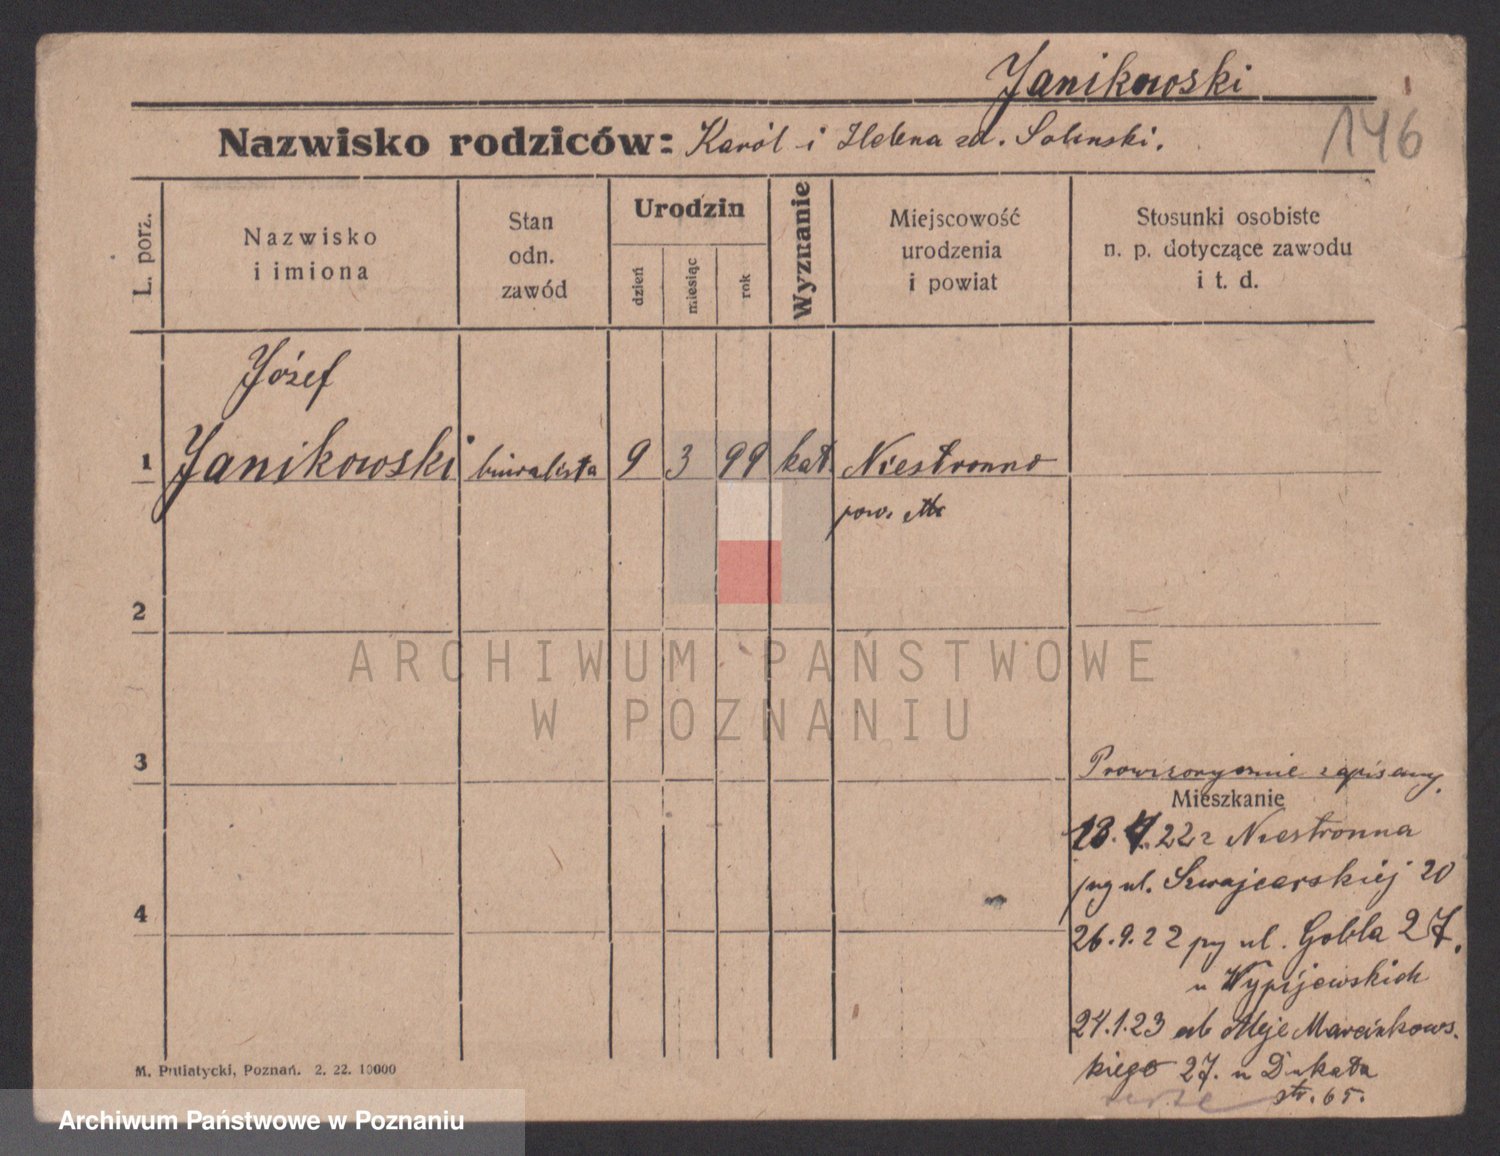 Janikowski
Nazwisko rodziców: Karól i Helena zd. Solenski.
146
L. porz.
Nazwisko i imiona
Stan odn. zawód
Urodzin
dzień
miesiąc
rok
Wyznanie
Miejscowość urodzenia i powiat
Stosunki osobiste n. p. dotyczące zawodu i t. d.
Józef
1 Janikowski biuralista 9 3 99 kat. Niestronno
pow.
2
ARCHIWUM PAŃSTWOWE
W POZNANIU
3
Prowizorycznie zapisany.
Mieszkanie
18.4.22 z Niestronna
przy ul. Szwajcarskiéj 20
4
26.9.22 przy ul. Gobla 27.
u Wypijewskich
24.1.23 ul. Aleje Marcinkows-
kiego 27. u Dukata
str. 65.
M. Putiatycki, Poznań. 2. 22. 10000
Archiwum Państwowe w Poznaniu